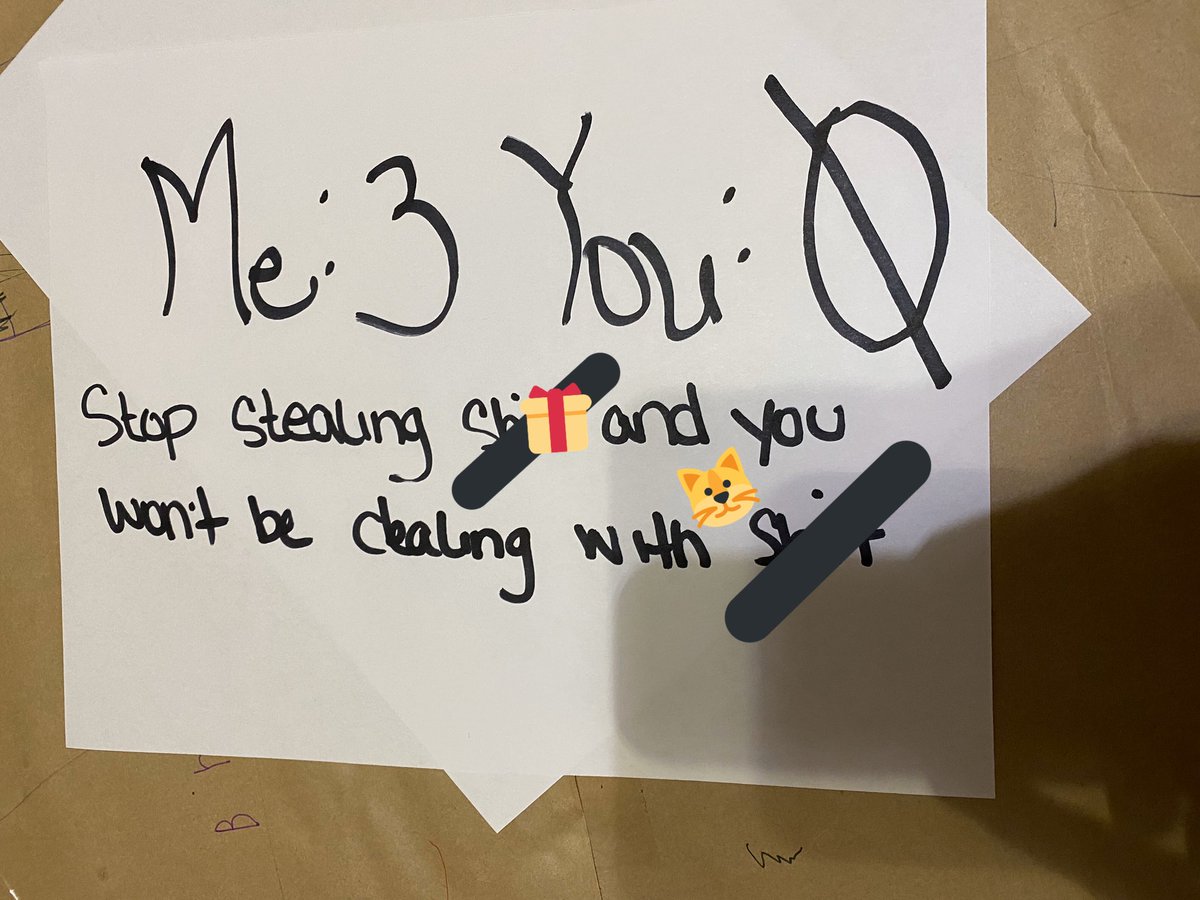 Me: 3 You: 0
Stop stealing and you
won't be dealing with
B